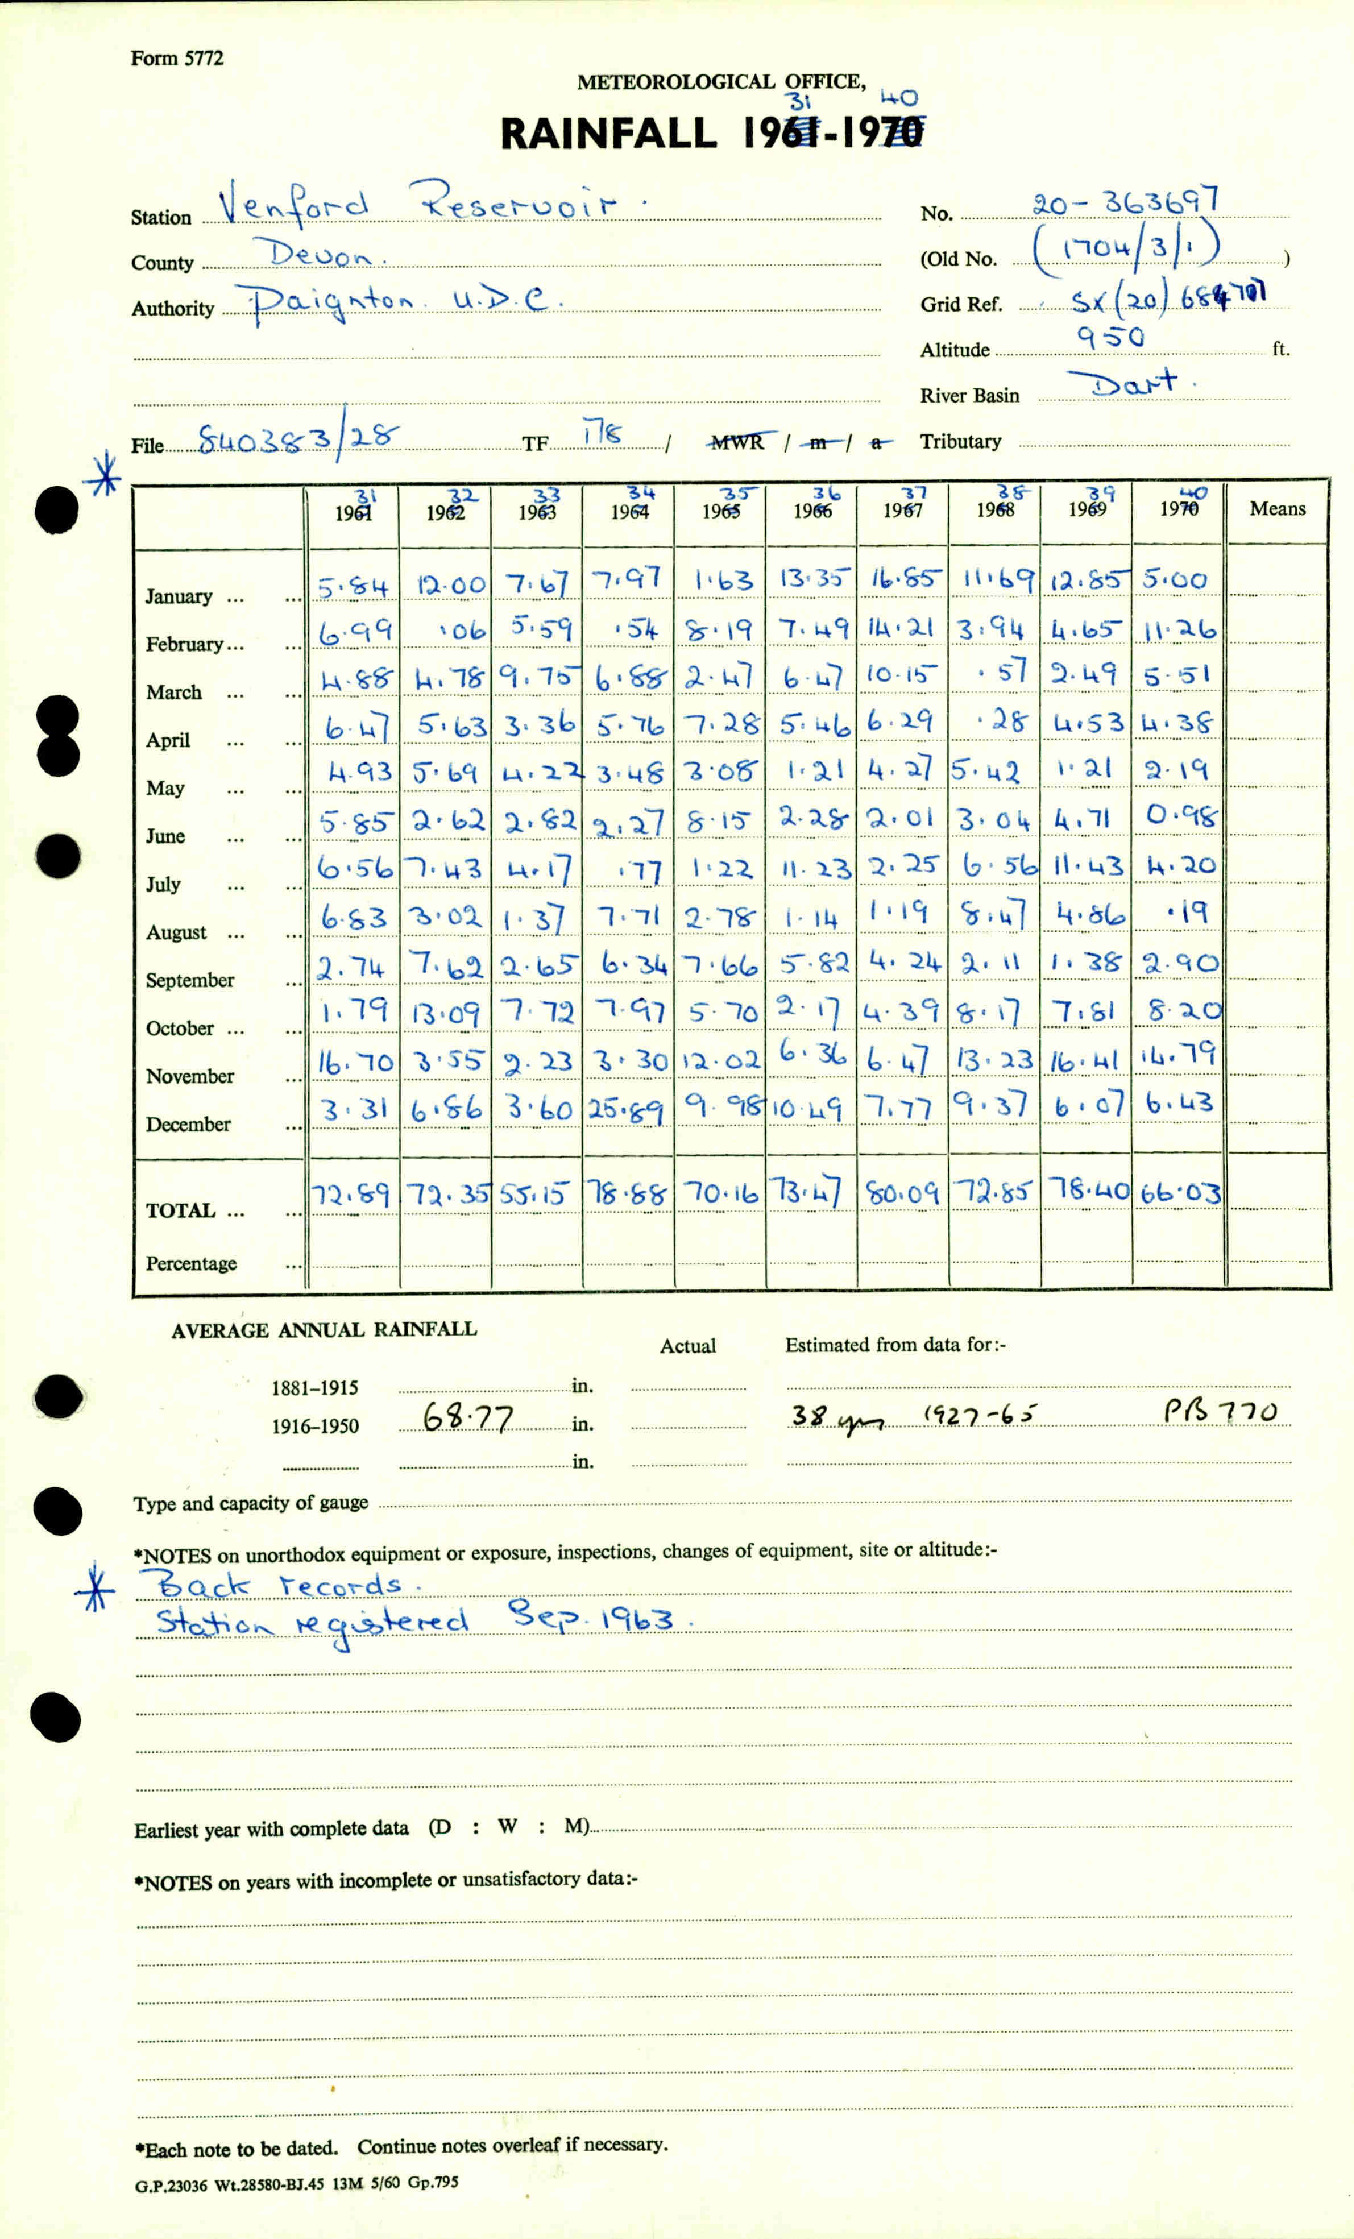 Form 5772
METEOROLOGICAL OFFICE,
31 40
RAINFALL 1961-1970
Station Venford Reservoir. No. 20-363697
County Devon. (Old No. (1704/3/1) )
Authority Paignton U.D.C. Grid Ref. SX(20)684701
Altitude 950 ft.
River Basin Dart.
File 840383/28 TF 178 / MWR / m / a Tributary
*
31 32 33 34 35 36 37 38 39 40
1961 1962 1963 1964 1965 1966 1967 1968 1969 1970 Means
January ... ... 5.84 12.00 7.67 7.97 1.63 13.35 16.85 11.69 12.85 5.00
February... ... 6.99 .06 5.59 .54 8.19 7.49 14.21 3.94 4.65 11.26
March ... ... 4.88 4.78 9.75 6.88 2.47 6.47 10.15 .57 2.49 5.51
April ... ... 6.47 5.63 3.36 5.76 7.28 5.46 6.29 .28 4.53 4.38
May ... ... 4.93 5.69 4.22 3.48 3.08 1.21 4.27 5.42 1.21 2.19
June ... ... 5.85 2.62 2.82 2.27 8.15 2.28 2.01 3.04 4.71 0.98
July ... ... 6.56 7.43 4.17 .77 1.22 11.23 2.25 6.56 11.43 4.20
August ... ... 6.83 3.02 1.37 7.71 2.78 1.14 1.19 8.47 4.86 .19
September ... 2.74 7.62 2.65 6.34 7.66 5.82 4.24 2.11 1.38 2.90
October ... ... 1.79 13.09 7.72 7.97 5.70 2.17 4.39 8.17 7.81 8.20
November ... 16.70 3.55 2.23 3.30 12.02 6.36 6.47 13.23 16.41 14.79
December ... 3.31 6.86 3.60 25.89 9.98 10.49 7.77 9.37 6.07 6.43
TOTAL ... ... 72.89 72.35 55.15 78.88 70.16 73.47 80.09 72.85 78.40 66.03
Percentage ...
AVERAGE ANNUAL RAINFALL
Actual Estimated from data for:-
1881-1915 in.
1916-1950 68.77 in. 38 yrs 1927-65 PB 770
in.
Type and capacity of gauge
*NOTES on unorthodox equipment or exposure, inspections, changes of equipment, site or altitude:-
* Back records.
Station registered Sep. 1963.
Earliest year with complete data (D : W : M)
*NOTES on years with incomplete or unsatisfactory data:-
*Each note to be dated. Continue notes overleaf if necessary.
G.P.23036 Wt.28580-BJ.45 13M 5/60 Gp.795